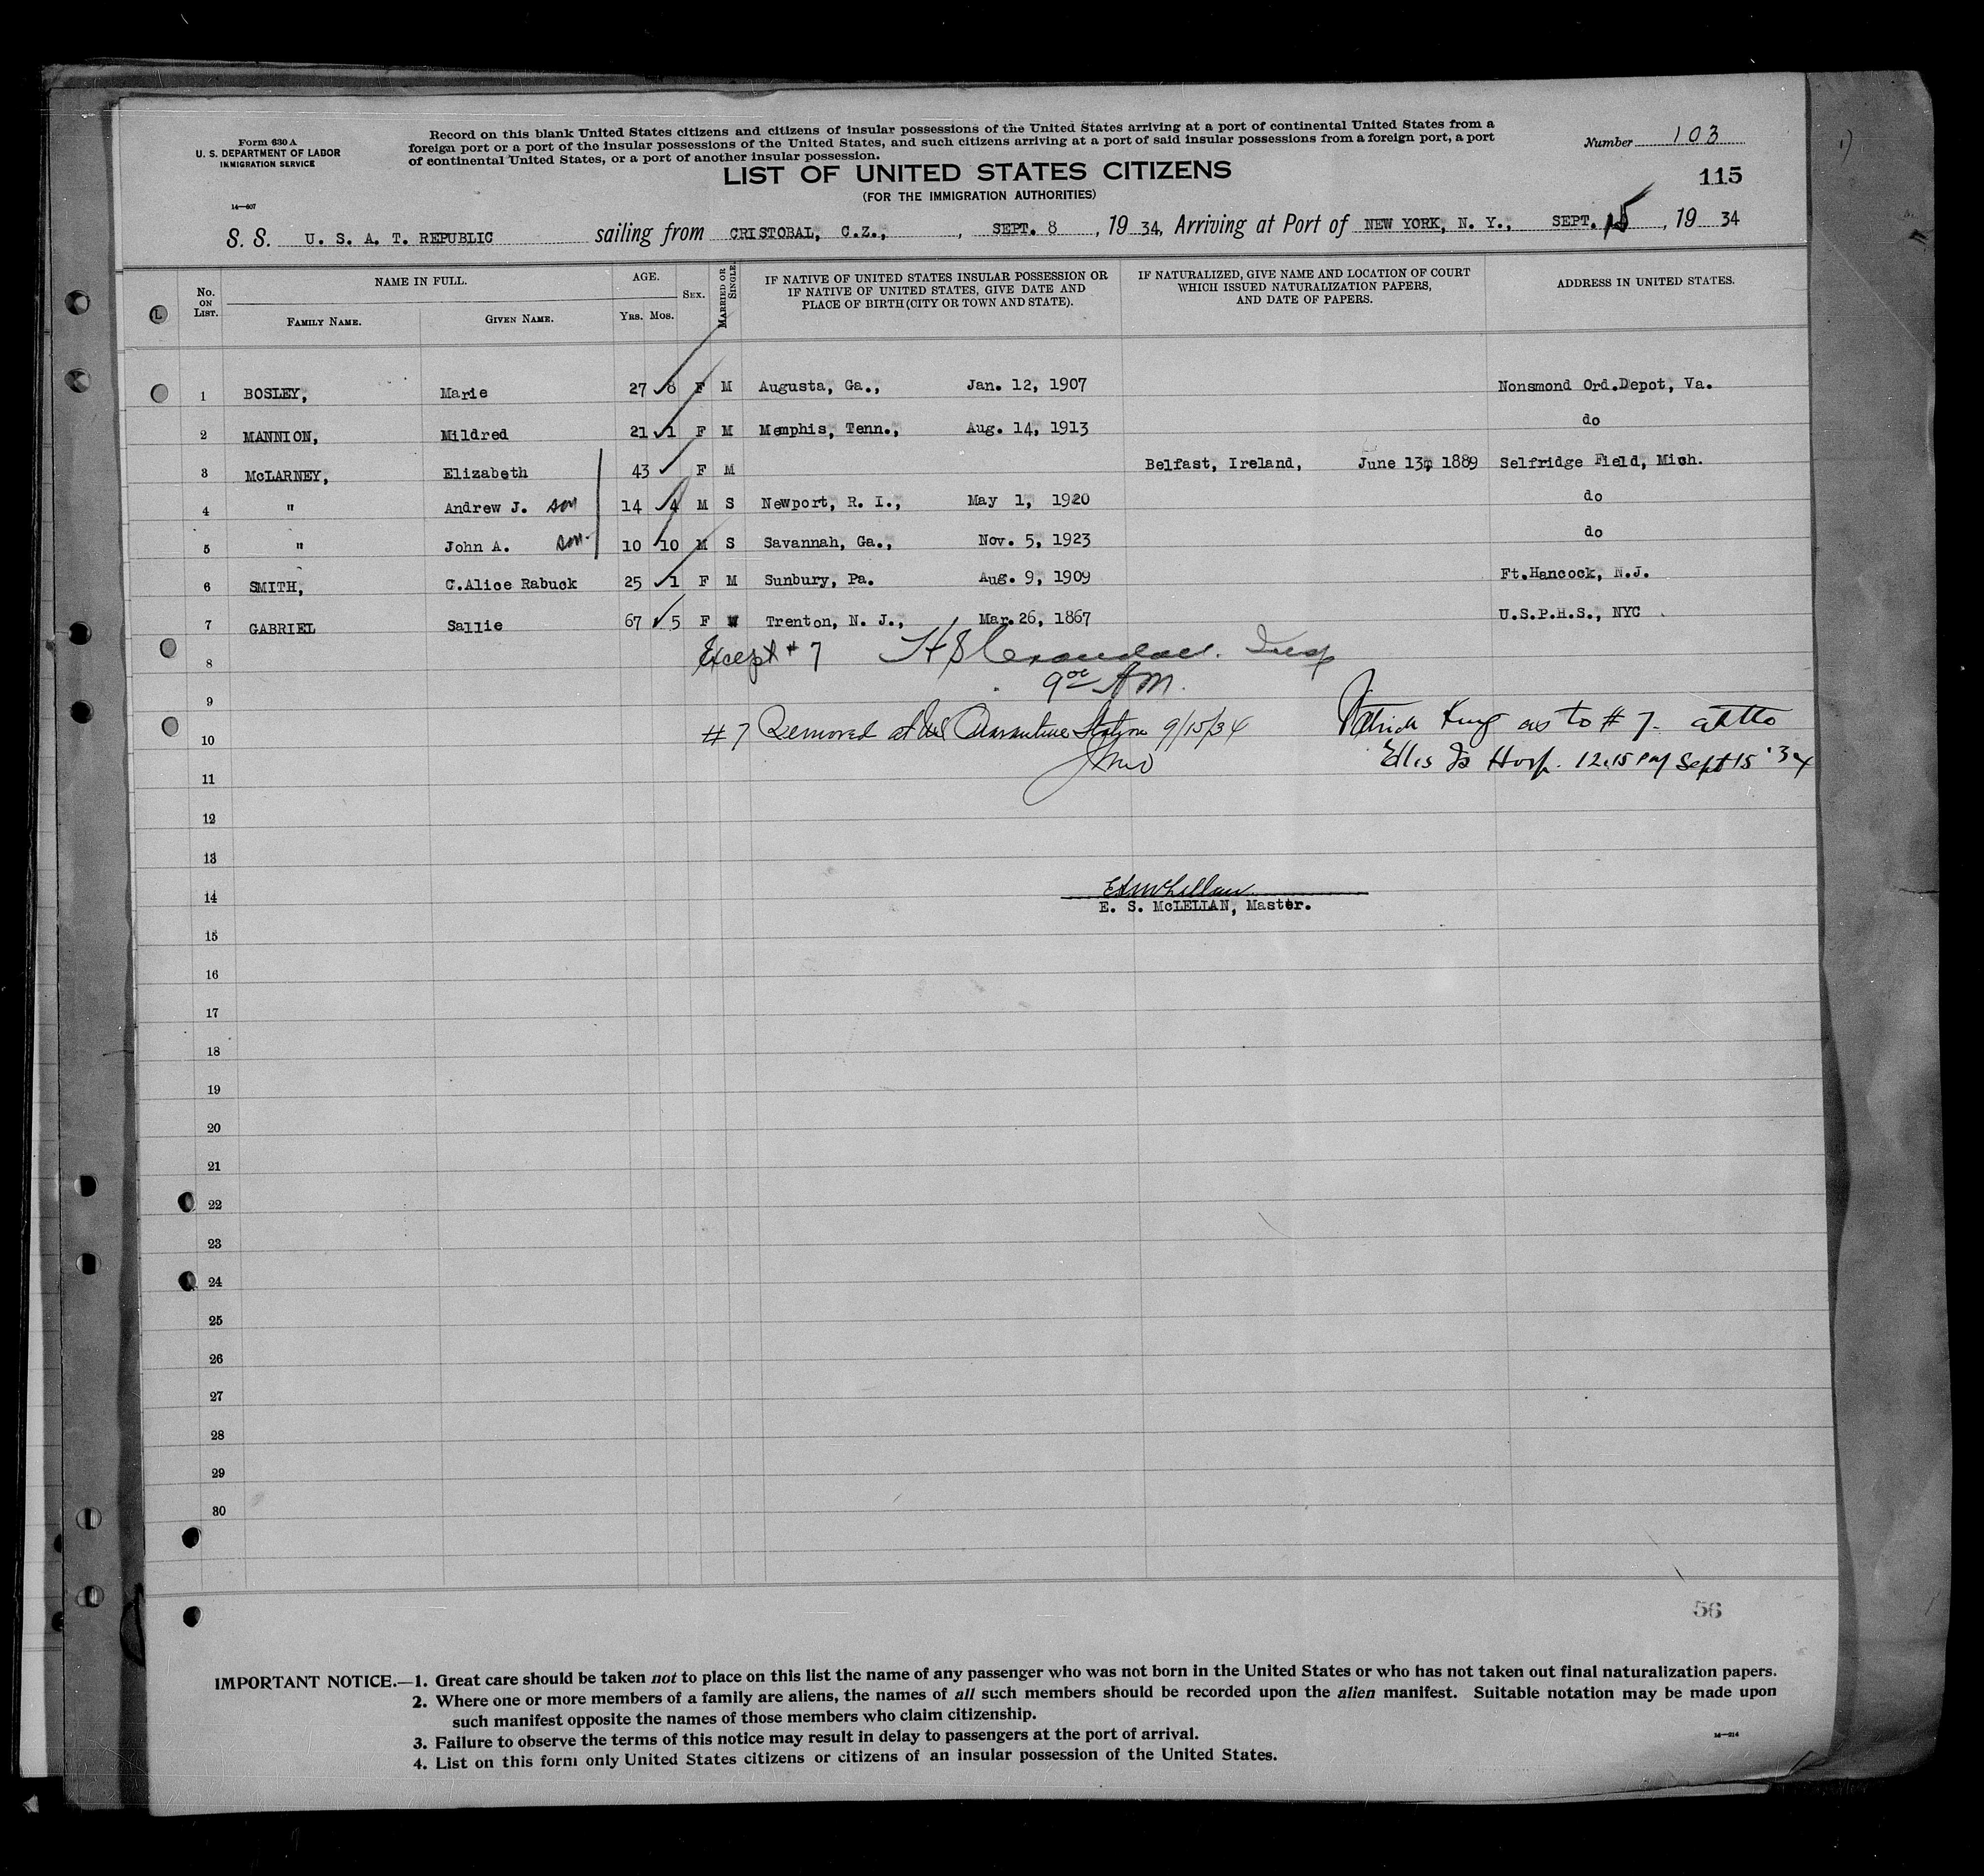 Form 630 A
U. S. DEPARTMENT OF LABOR
IMMIGRATION SERVICE
14—607
Record on this blank United States citizens and citizens of insular possessions of the United States arriving at a port of continental United States from a
foreign port or a port of the insular possessions of the United States, and such citizens arriving at a port of said insular possessions from a foreign port, a port
of continental United States, or a port of another insular possession.
Number 103
115
LIST OF UNITED STATES CITIZENS
(FOR THE IMMIGRATION AUTHORITIES)
S. S. U. S. A. T. REPUBLIC sailing from CRISTOBAL, C.Z., , SEPT. 8 , 19 34, Arriving at Port of NEW YORK, N. Y., SEPT. 15 , 19 34
No. ON LIST. NAME IN FULL. FAMILY NAME. GIVEN NAME. AGE. YRS. MOS. SEX. MARRIED OR SINGLE. IF NATIVE OF UNITED STATES INSULAR POSSESSION OR IF NATIVE OF UNITED STATES, GIVE DATE AND PLACE OF BIRTH (CITY OR TOWN AND STATE). IF NATURALIZED, GIVE NAME AND LOCATION OF COURT WHICH ISSUED NATURALIZATION PAPERS, AND DATE OF PAPERS. ADDRESS IN UNITED STATES.
1 BOSLEY, Marie 27 8 F M Augusta, Ga., Jan. 12, 1907 Nonsmond Ord.Depot, Va.
2 MANNION, Mildred 21 1 F M Memphis, Tenn., Aug. 14, 1913 do
3 McLARNEY, Elizabeth 43 F M Belfast, Ireland, June 13, 1889 Selfridge Field, Mich.
4 " Andrew J. son 14 4 M S Newport, R. I., May 1, 1920 do
5 " John A. son 10 10 M S Savannah, Ga., Nov. 5, 1923 do
6 SMITH, C.Alice Rabuck 25 1 F M Sunbury, Pa. Aug. 9, 1909 Ft.Hancock, N.J.
7 GABRIEL Sallie 67 5 F W Trenton, N. J., Mar.26, 1867 U.S.P.H.S., NYC
8 Except # 7 Insp
9 9 00 AM.
10 # 7 Removed at Quarantine Station 9/15/34 Patrick King as to # 7.
11 Ellis Is Hosp. 12.15 PM Sept 15 '34
12
13
14
E. S. McLELLAN, Master.
15
16
17
18
19
20
21
22
23
24
25
26
27
28
29
30
56
IMPORTANT NOTICE.—1. Great care should be taken not to place on this list the name of any passenger who was not born in the United States or who has not taken out final naturalization papers.
2. Where one or more members of a family are aliens, the names of all such members should be recorded upon the alien manifest. Suitable notation may be made upon
such manifest opposite the names of those members who claim citizenship.
3. Failure to observe the terms of this notice may result in delay to passengers at the port of arrival.
4. List on this form only United States citizens or citizens of an insular possession of the United States.
14—214